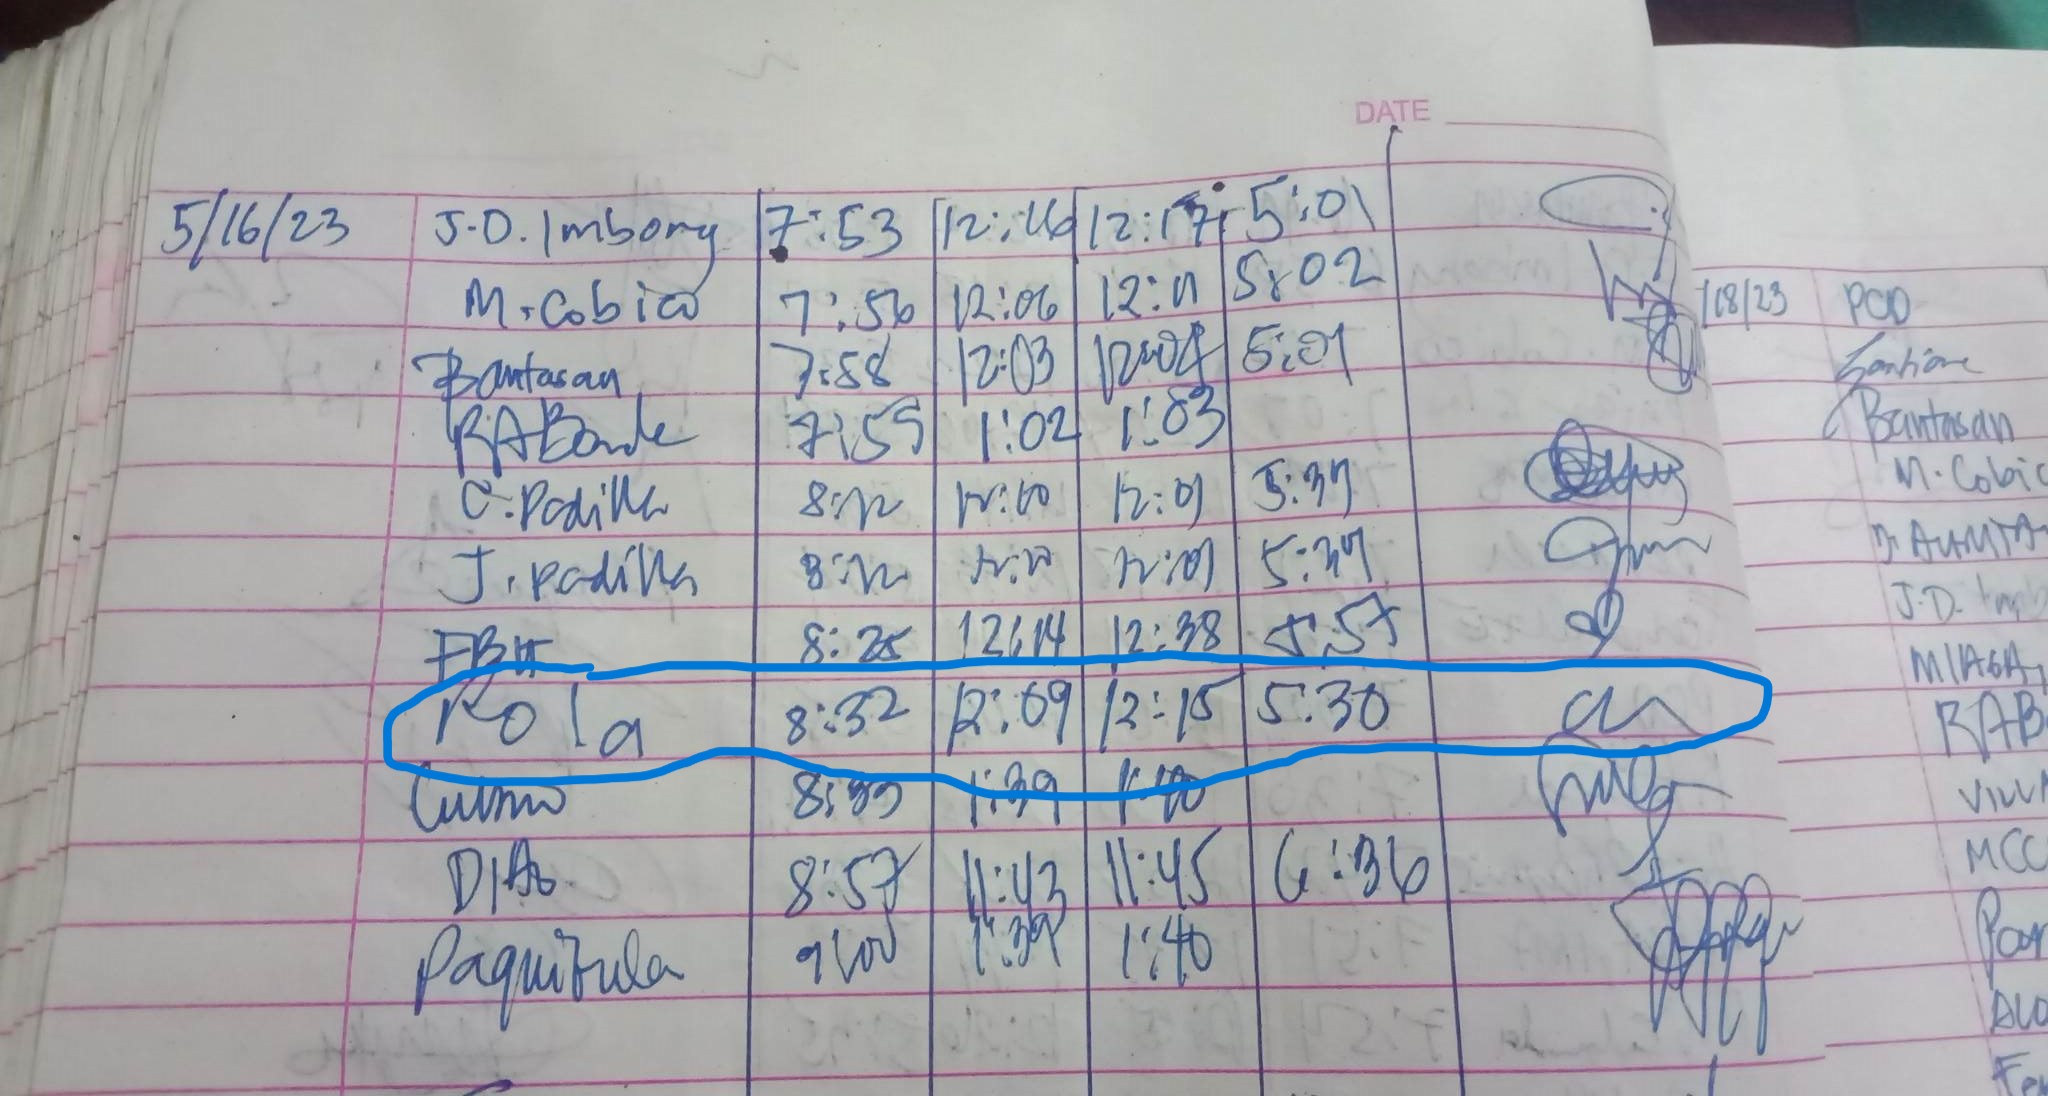 DATE
5/16/23 J.D. Imbong 7:53 12:16 12:17 5:01
M. Cobico 7:56 12:06 12:11 5:02
Bantasan 7:58 12:03 12:04 5:01
RABonde 7:59 1:02 1:03
C. Padilla 8:12 12:00 12:01 5:37
J. Padilla 8:12 12:01 5:37
8:25 12:14 12:38 5:57
Pola 8:32 12:09 12:15 5:30
8:33 1:39 1:40
8:57 11:43 11:45 6:36
Paquibula 9:00 1:39 1:40
/18/23 POD
Bantasan
M. Cobic
J.D.
MIAGA
RAB
VILLA
MCC